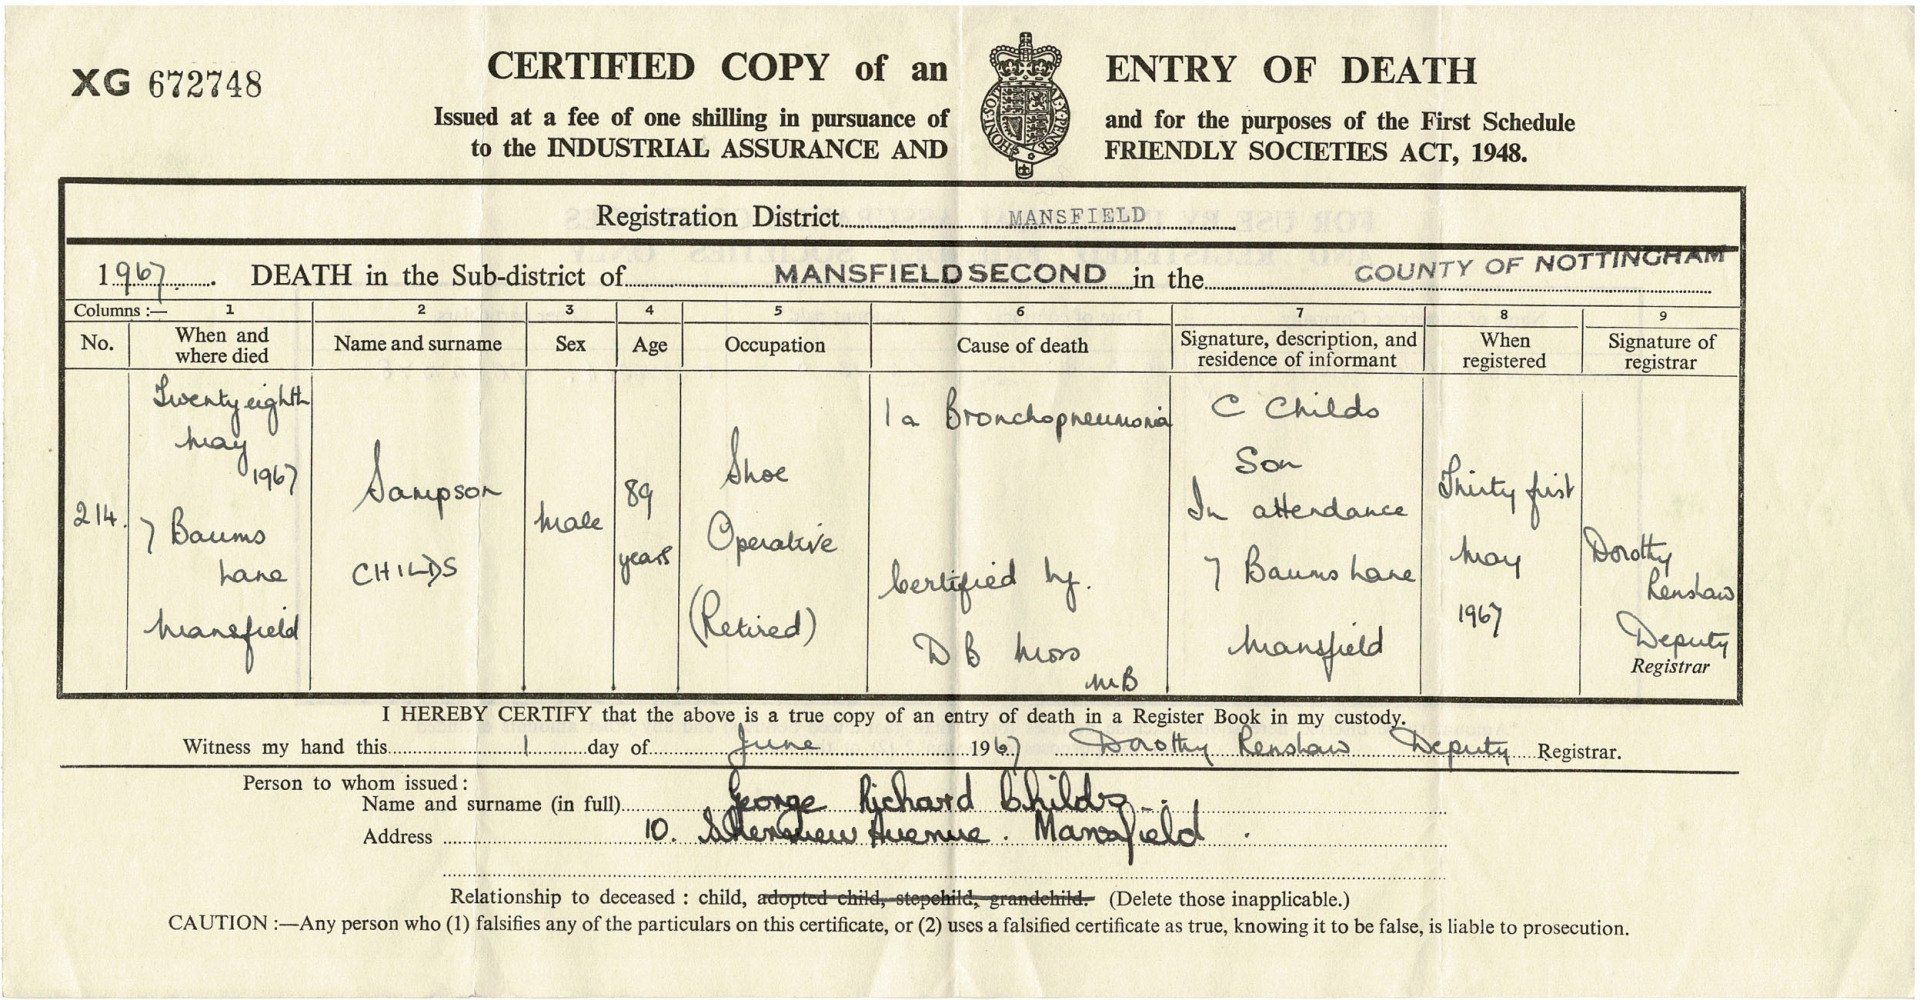 XG 672748
CERTIFIED COPY of an ENTRY OF DEATH
Issued at a fee of one shilling in pursuance of and for the purposes of the First Schedule
to the INDUSTRIAL ASSURANCE AND FRIENDLY SOCIETIES ACT, 1948.
HONI·SOIT AL·Y·PENSE
Registration District MANSFIELD
1967. DEATH in the Sub-district of MANSFIELD SECOND in the COUNTY OF NOTTINGHAM
Columns :— 1 2 3 4 5 6 7 8 9
No.
When and
where died
Name and surname
Sex
Age
Occupation
Cause of death
Signature, description, and
residence of informant
When
registered
Signature of
registrar
214.
Twenty eighth
May
1967
7 Baums
Lane
Mansfield
Sampson
CHILDS
Male
89
years
Shoe
Operative
(Retired)
1a Bronchopneumonia
Certified by.
D B Moss
MB
C Childs
Son
In attendance
7 Baums Lane
Mansfield
Thirty first
May
1967
Dorothy
Renshaw
Deputy
Registrar
I HEREBY CERTIFY that the above is a true copy of an entry of death in a Register Book in my custody.
Witness my hand this 1 day of June 1967 Dorothy Renshaw Deputy Registrar.
Person to whom issued :
Name and surname (in full) George Richard Childs.
Address 10. Avenue. Mansfield.
Relationship to deceased : child, adopted child, stepchild, grandchild. (Delete those inapplicable.)
CAUTION :—Any person who (1) falsifies any of the particulars on this certificate, or (2) uses a falsified certificate as true, knowing it to be false, is liable to prosecution.